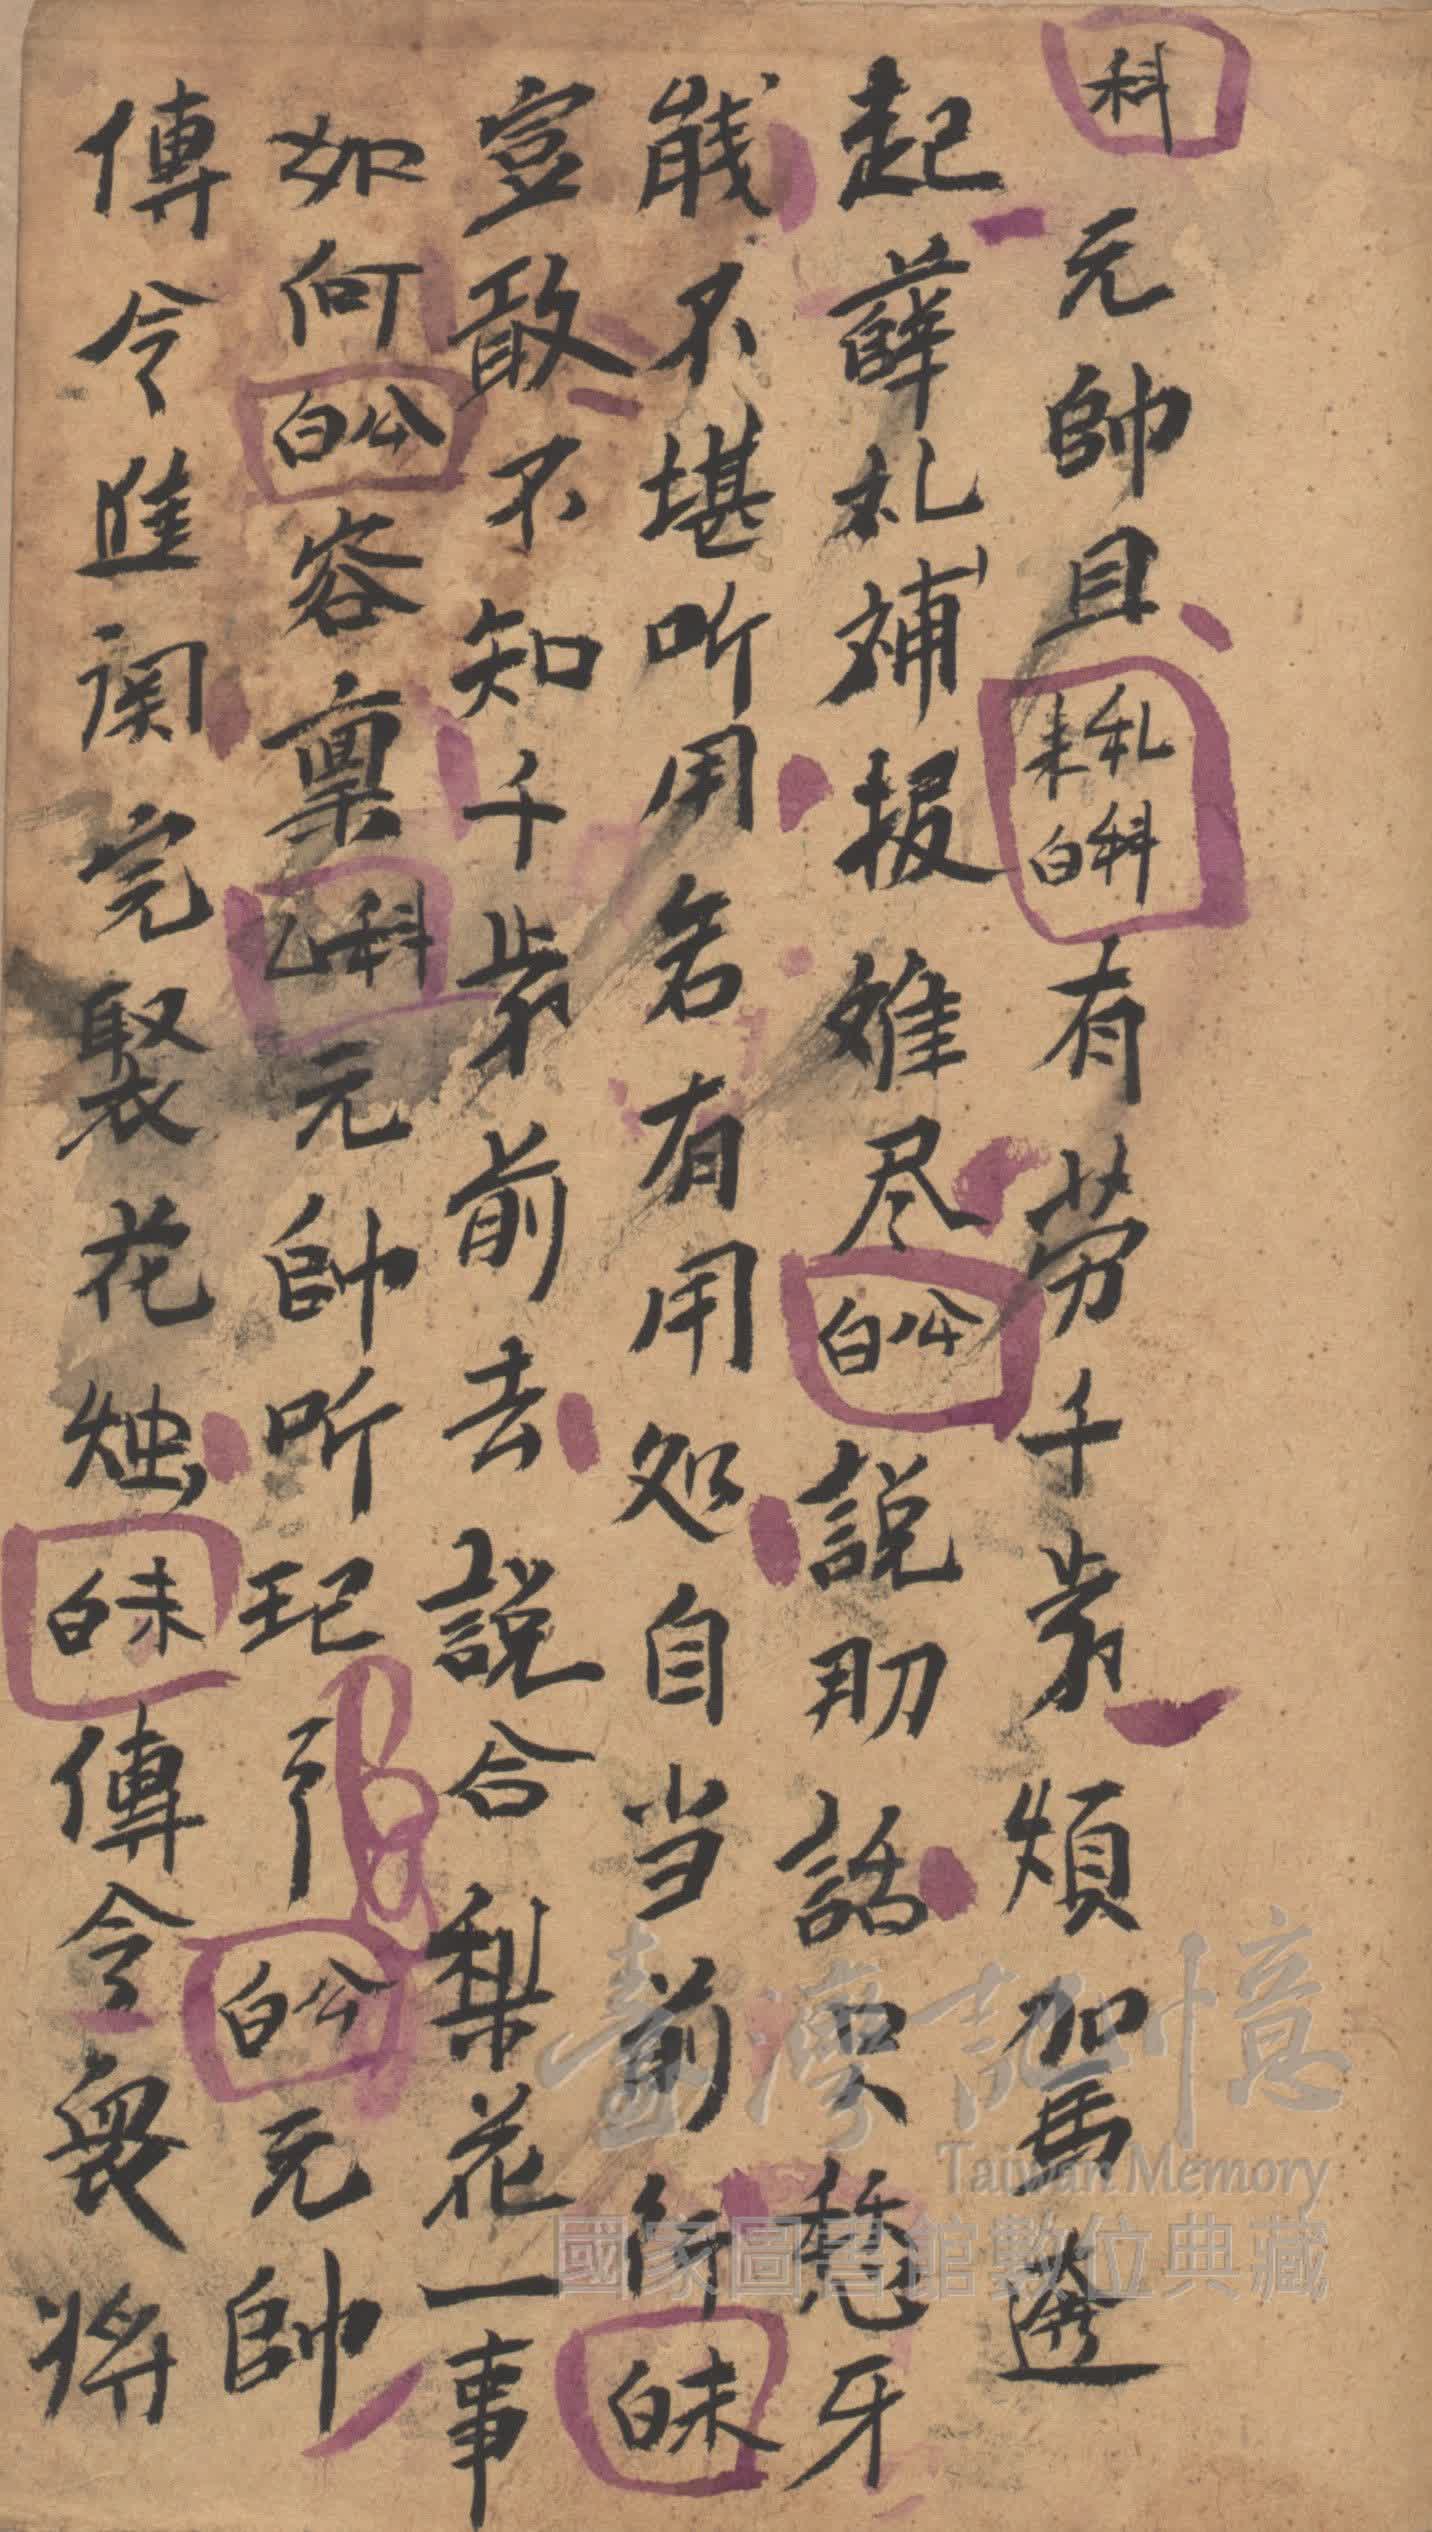 科 元帥且 札科末白 有勞千歲煩駕遊
起薛礼補报难尽 公白 說那話只愁牙
戕不堪听用若有用処自当前行 末白
豈敢不知千歲前去說合梨花一事
如何 公白 容稟 科 元帥听 引 公白 元帥
傳令進関完娶花烛 末白 傳令眾將
臺灣記憶
Taiwan Memory
國家圖書館數位典藏